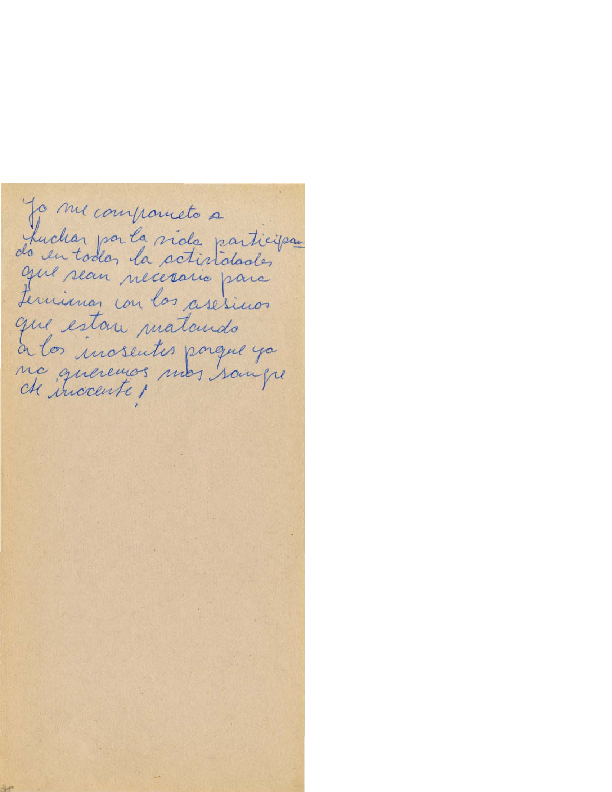 Yo me comprometo a
luchar por la vida participan
do en todas la actividades
que sean necesario para
terminar con los asesinos
que estan matando
a los inosentes porque ya
no queremos mas sangre
de inocente!